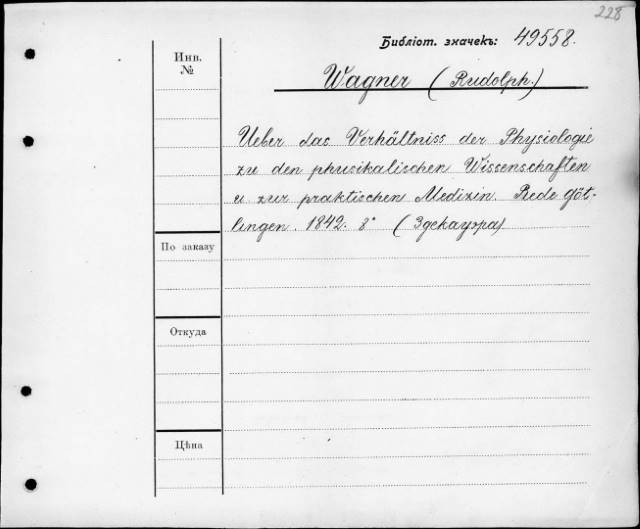 228
Библіот. значекъ: 49558.
Инв.
№
Wagner (Rudolph.)
Ueber das Verhältniss der Physiologie
zu den phusikalischen Wissenschaften
u. zur praktischen Medizin. Rede Göt-
lingen. 1842. 8° (Здекауэра)
По заказу
Откуда
Цѣна